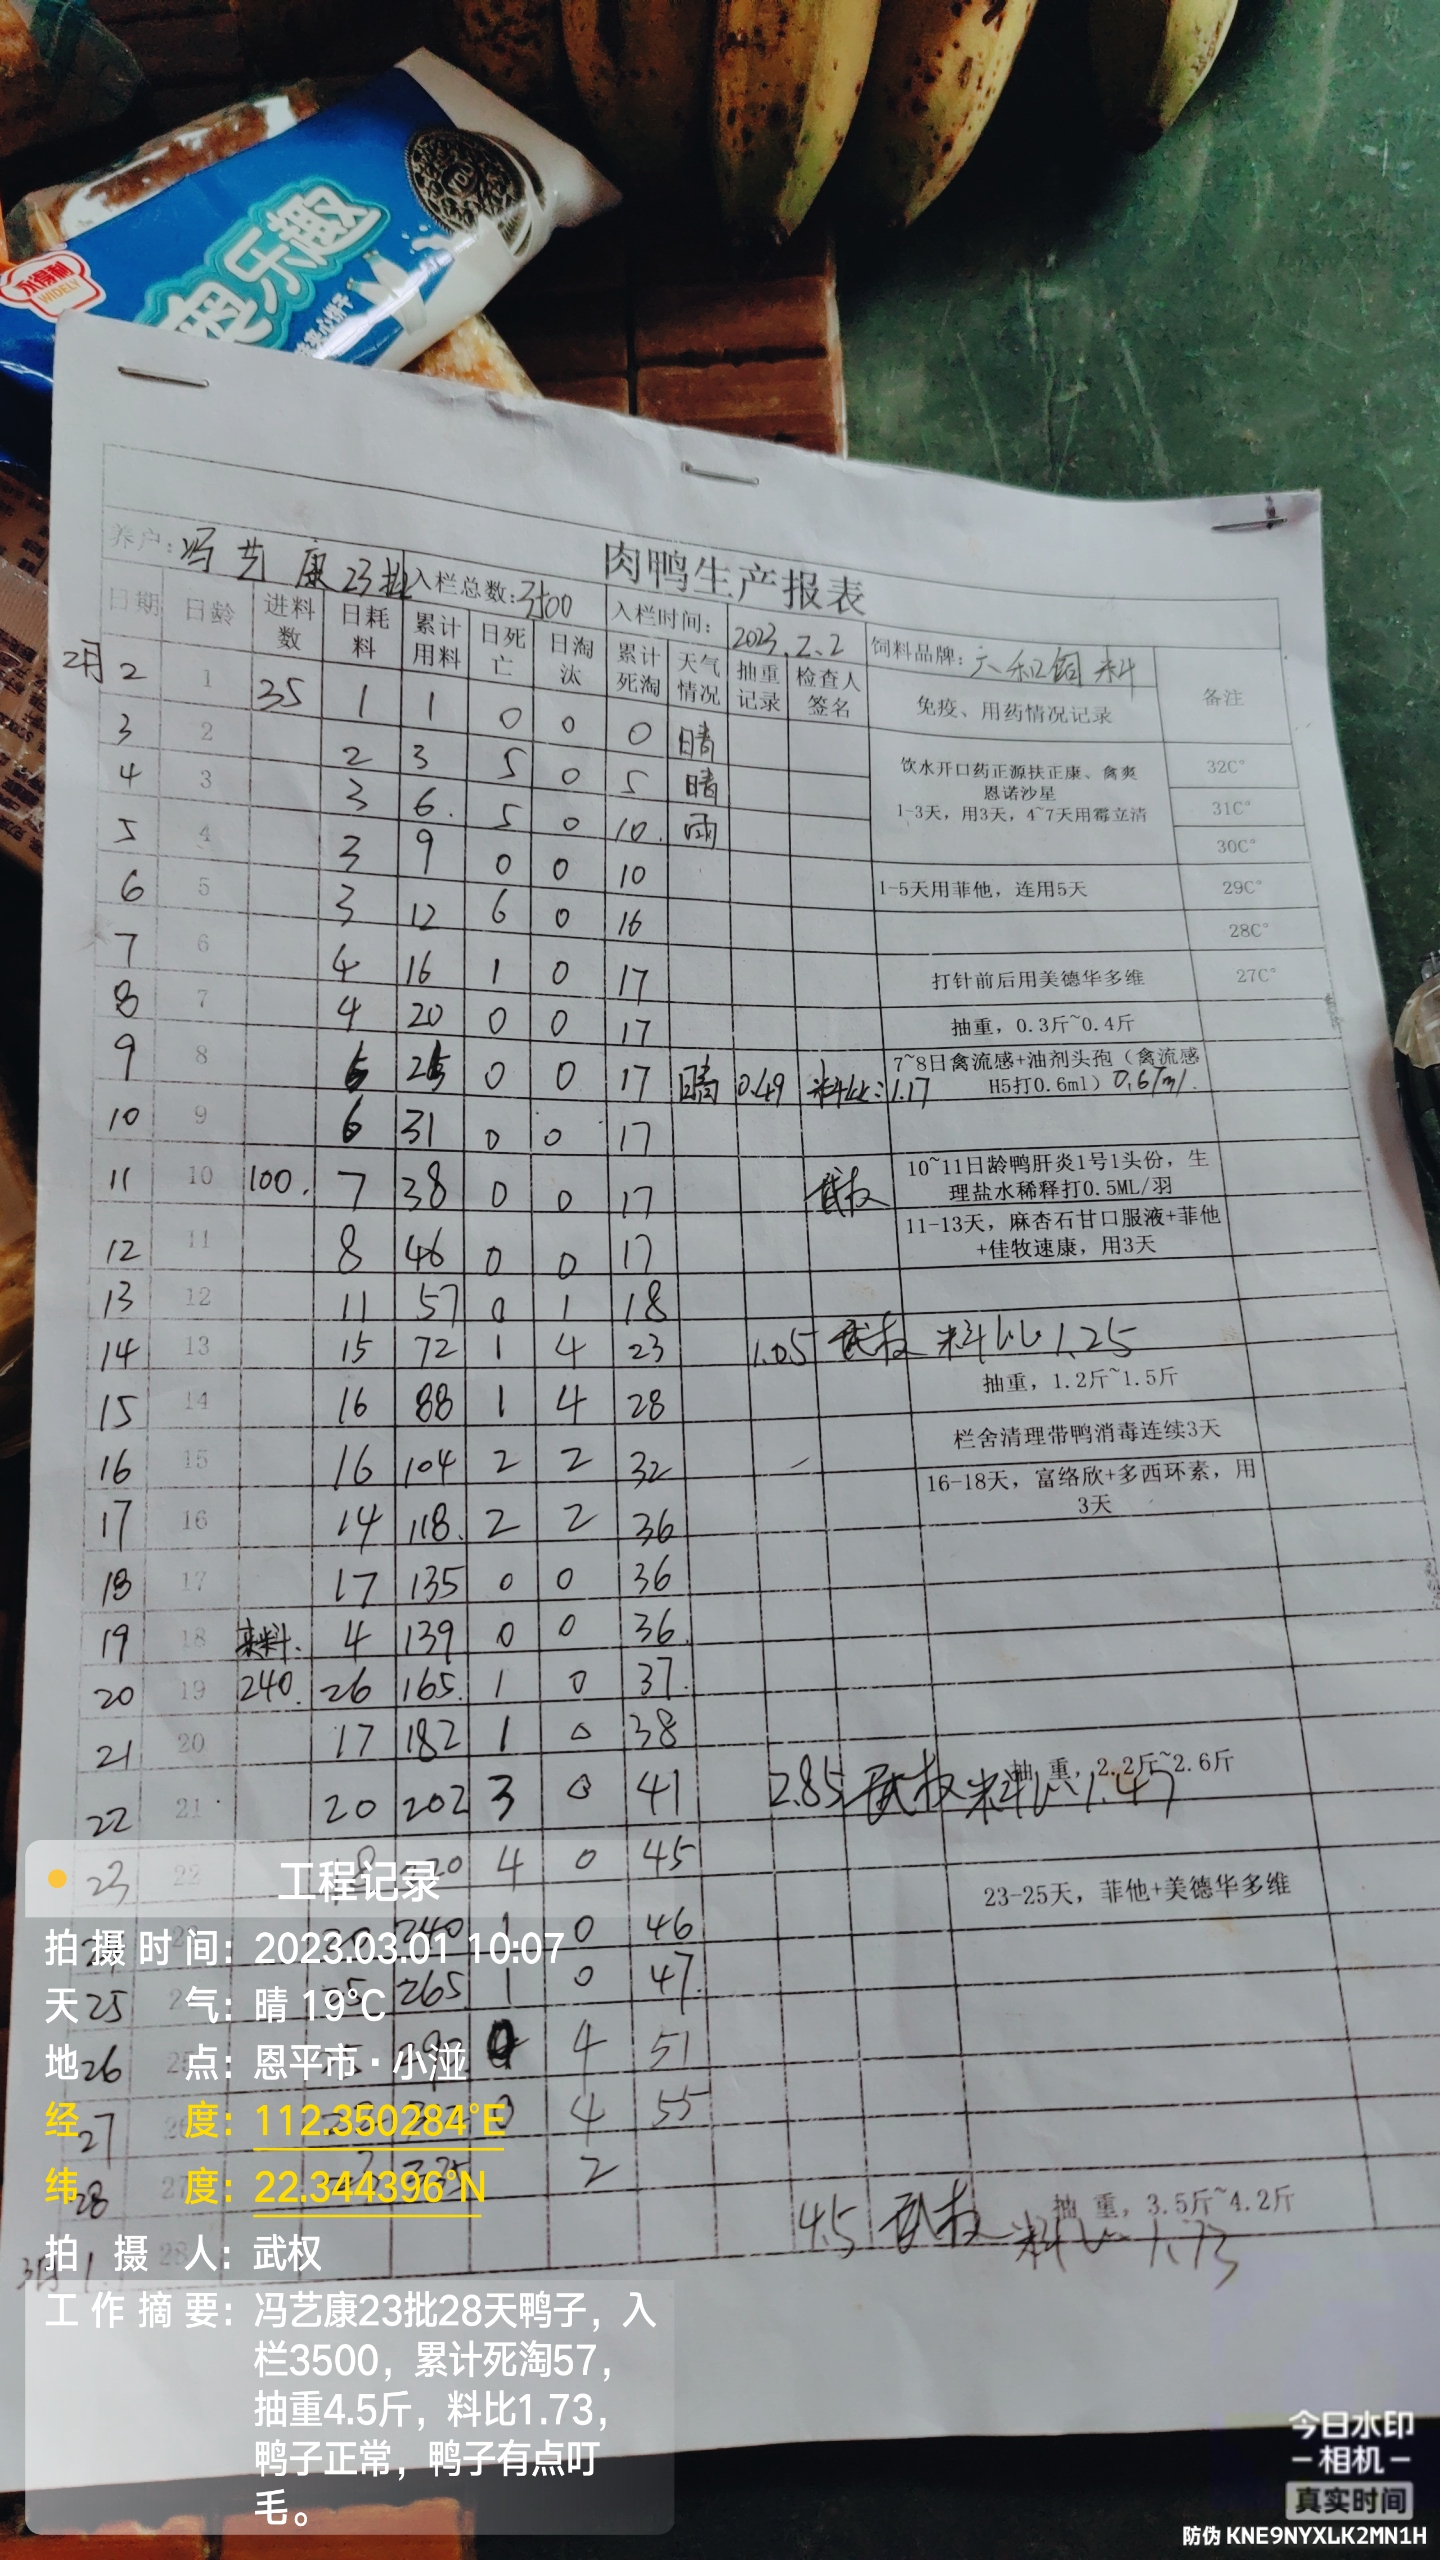 永得利
WIDELY
奥乐趣
夹心饼干
肉鸭生产报表
养户：冯艺康23批 入栏总数：3500 入栏时间：2023.2.2 饲料品牌：六和饲料
日期 日龄 进料数 日耗料 累计用料 日死亡 日淘汰 累计死淘 天气情况 抽重记录 检查人签名 免疫、用药情况记录 备注
2月 2 1 35 1 1 0 0 0 晴
3 2 2 3 5 0 5 晴
饮水开口药正源扶正康、禽爽
恩诺沙星
1-3天，用3天，4~7天用霉立清
32C°
4 3 3 6. 5 0 10. 雨 31C°
30C°
5 4 3 9 0 0 10 1-5天用菲他，连用5天 29C°
6 5 3 12 6 0 16 28C°
7 6 4 16 1 0 17 打针前后用美德华多维 27C°
8 7 4 20 0 0 17 抽重，0.3斤~0.4斤
9 8 25 0 0 17 晴 0.49 料比：1.17
7~8日禽流感+油剂头孢（禽流感
H5打0.6ml）0.6ml.
10 9 6 31 0 0 17
11 10 100. 7 38 0 0 17 武权
10~11日龄鸭肝炎1号1头份，生
理盐水稀释打0.5ML/羽
12 11 8 46 0 0 17
11-13天，麻杏石甘口服液+菲他
+佳牧速康，用3天
13 12 11 57 0 1 18
14 13 15 72 1 4 23 1.05 武权 料比1.25
15 14 16 88 1 4 28 抽重，1.2斤~1.5斤
16 15 16 104 2 2 32 栏舍清理带鸭消毒连续3天
17 16 14 118. 2 2 36
16-18天，富络欣+多西环素，用
3天
18 17 17 135 0 0 36
19 18 来料. 4 139 0 0 36.
20 19 240. 26 165. 1 0 37.
21 20 17 182 1 0 38
22 21 20 202 3 0 41 2.85 武权 料比1.47 抽重，2.2斤~2.6斤
23 22 4 0 45
240 1 0 46 23-25天，菲他+美德华多维
25 265 1 0 47.
26 4 51
27 26 0 4 55
28 27 2
3月1. 28 4.5 武权 料比1.73 抽重，3.5斤~4.2斤
工程记录
拍摄时间：2023.03.01 10:07
天气：晴 19°C
地点：恩平市·小湴
经度：112.350284°E
纬度：22.344396°N
拍摄人：武权
工作摘要：冯艺康23批28天鸭子，入
栏3500，累计死淘57，
抽重4.5斤，料比1.73，
鸭子正常，鸭子有点叮
毛。
今日水印
-相机-
真实时间
防伪 KNE9NYXLK2MN1H